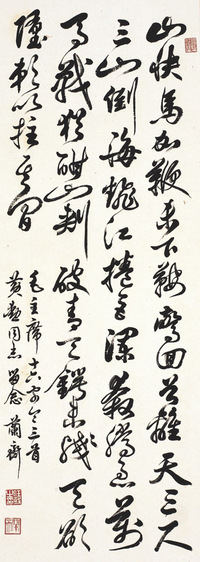 山快馬加鞭未下鞍驚回首離天三尺
三山倒海翻江捲巨瀾奔騰急萬
馬戰猶酣山刺破青天鍔未殘天欲
墮賴以拄其間
毛主席十六字令三首
黃同志留念 蕭